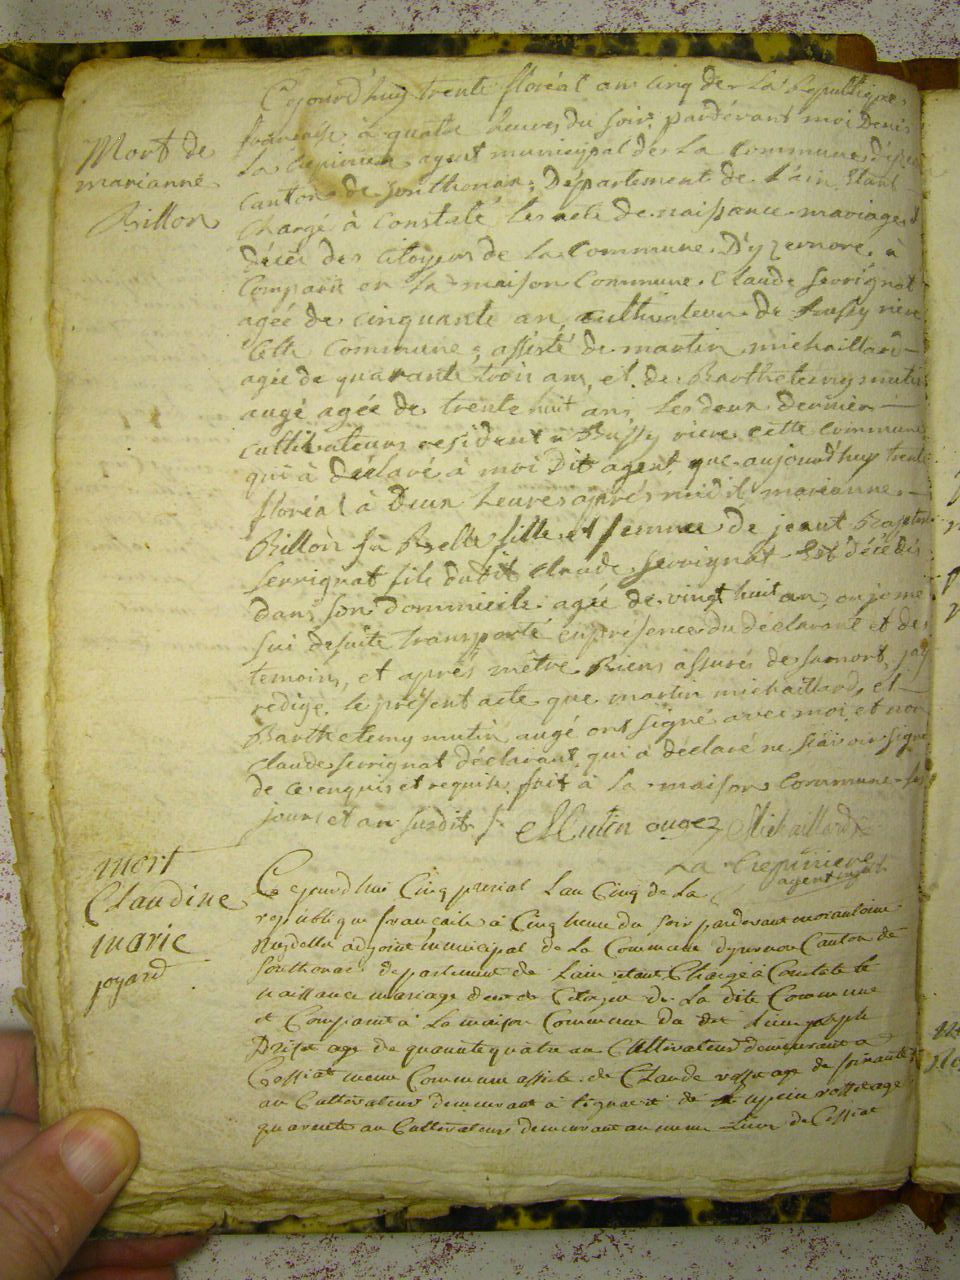 Mort de
marianne
Rillon
Cejourd'huy trente floréal an cinq de La Republique
francaise à quatre heures du soir, pardevant moi Denis
La Crepiniere agent municipal de La Commune d'yzer
canton de Sonthonax, Département de L'ain Etant
chargé à constaté les acte de naissance mariage &
décès des citoyens de La Commune D'yzernore, à
Comparu en La maison Commune Claude Serrignat
agée de cinquante an, cultivateur de Bussy riere
Cette commune, assisté de martin michaillard
agée de quarante trois ans, et de Barthelemy mutin
augé agée de trente huit ans, Les deux dernier
cultivateurs resident à Bussy riere cette commune
qui à déclaré à moi Dit agent que aujourd'huy trente
floréal à Deux heures après midi marianne
Rillon sa Belle fille et femme de jeant Baptiste
Serrignat fils dudit Claude Serrignat Est décédés
dans son dommicile agée de vingt huit an, ou je me
sui desuite transporté en présence du déclarant et des
temoins, et après mêtre Biens assurés de sa mort, j'ay
redigé le présent acte que martin michaillard et
Barthelemy mutin augé ont signé avec moi et non
claude serrignat déclarant qui à déclaré ne sçavoir signé
de ce enquis et requis, fait à La maison Commune les
jours et an susdit
Mutin augez Michaillard
La Crepiniere
agent mpal
mort
Claudine
marie
joyard
Cejourd'hui Cinq prerial Lan Cinq de La
republique francaise à Cinq heure du soir pardevant moi antoine
adjoint municipal de La Commune dysernore Canton de
Sonthonax departement de Lain etant Chargé à Constaté le
naissance mariage deces des Citoyen de La dite Commune
et Comparut à La maison Commune du dit Lieu joseph
age de quarante quatre an Cultivateur demeurant à
Cessiat meme Commune assisté de Claude rosset age de soixante
an Cultivateur demeurant à et de rosset age
quarente an Cultivateur demeurant au meme Lieu de Cessiat